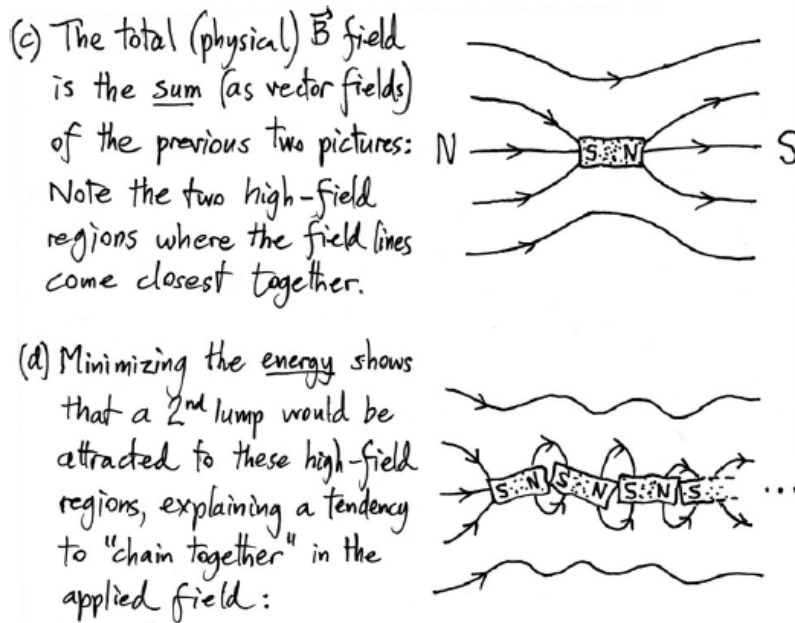 (c) The total (physical) B⃗ field
is the sum (as vector fields)
of the previous two pictures:
Note the two high-field
regions where the field lines
come closest together.
N S N S
(d) Minimizing the energy shows
that a 2nd lump would be
attracted to these high-field
regions, explaining a tendency
to "chain together" in the
applied field:
S N S N S N S ...